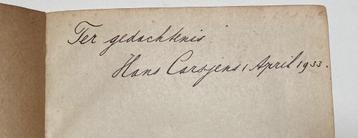 Ter gedachtenis
Hans Corsjens 1 April 1933.